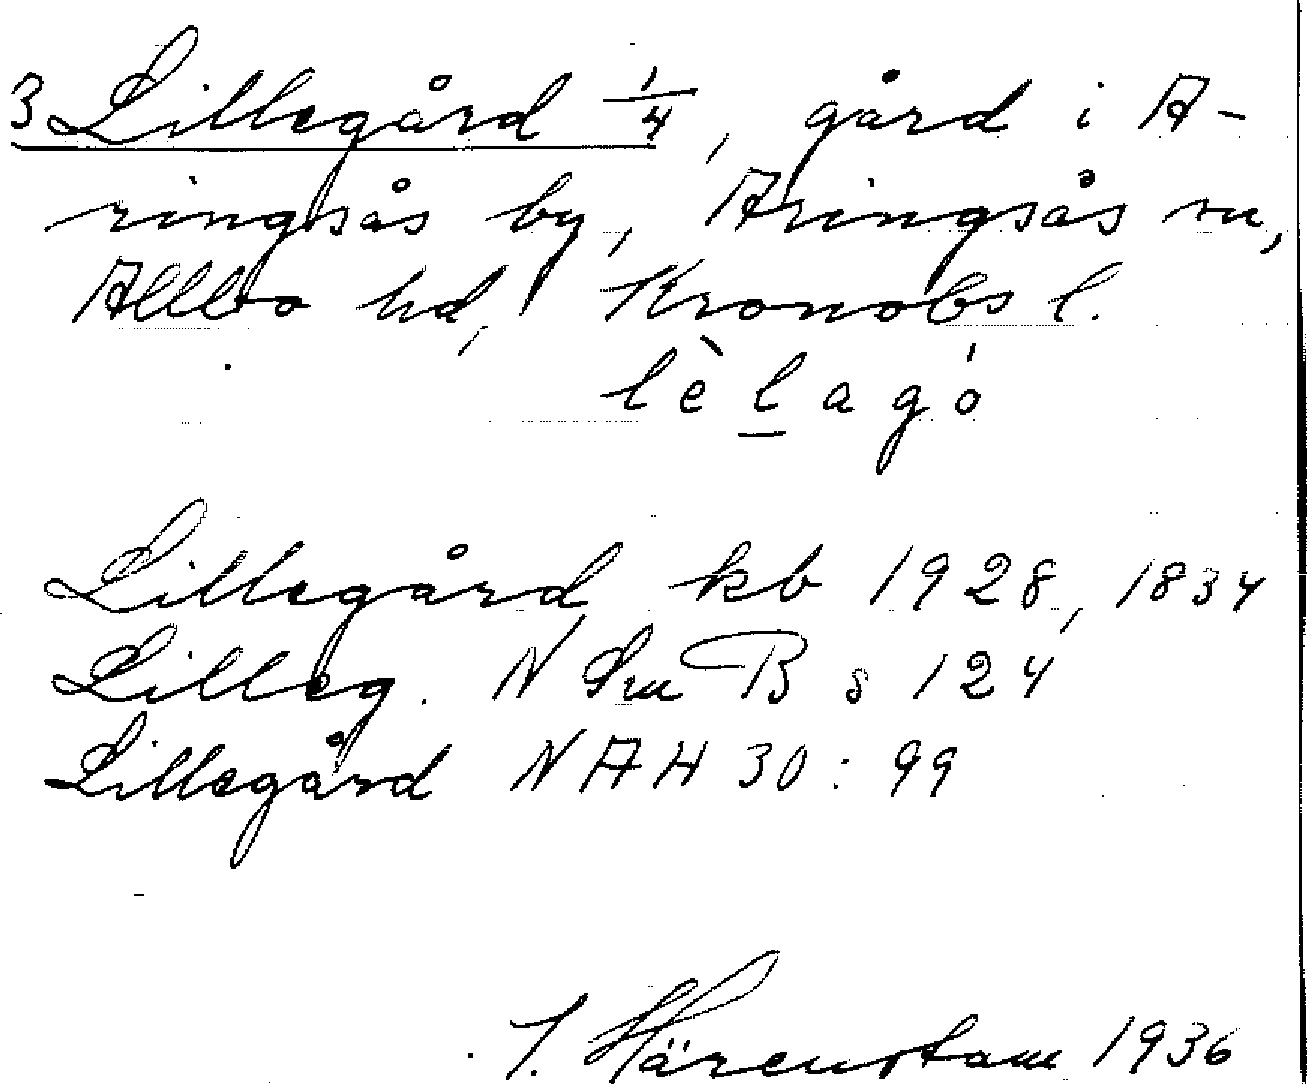 3 Lillegård 1/4, gård i A-
ringsås by, Aringsås sn,
Allbo hd, Kronobs l.
lèlagó
Lillegård kb 1928, 1834
Lilleg. N Sm B s 124
Lillegård NAH 30:99
J. Härenstam 1936